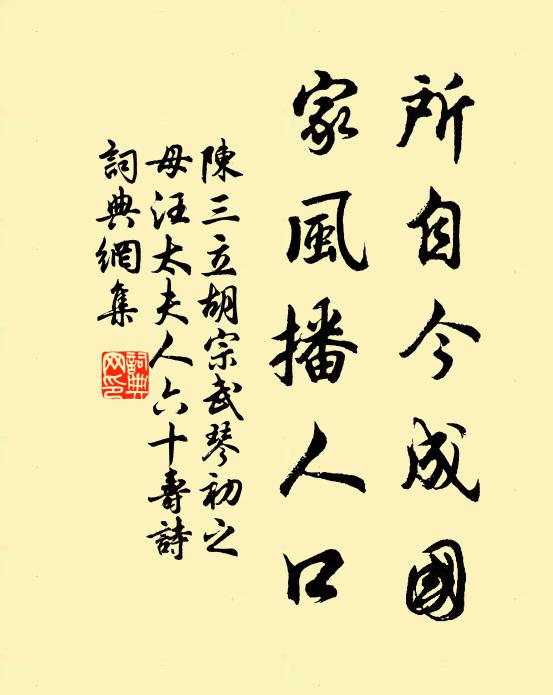 所自今成國
家風播人口
陳三立胡宗武琴初之
母汪太夫人六十壽詩
詞典網集
詞典網印